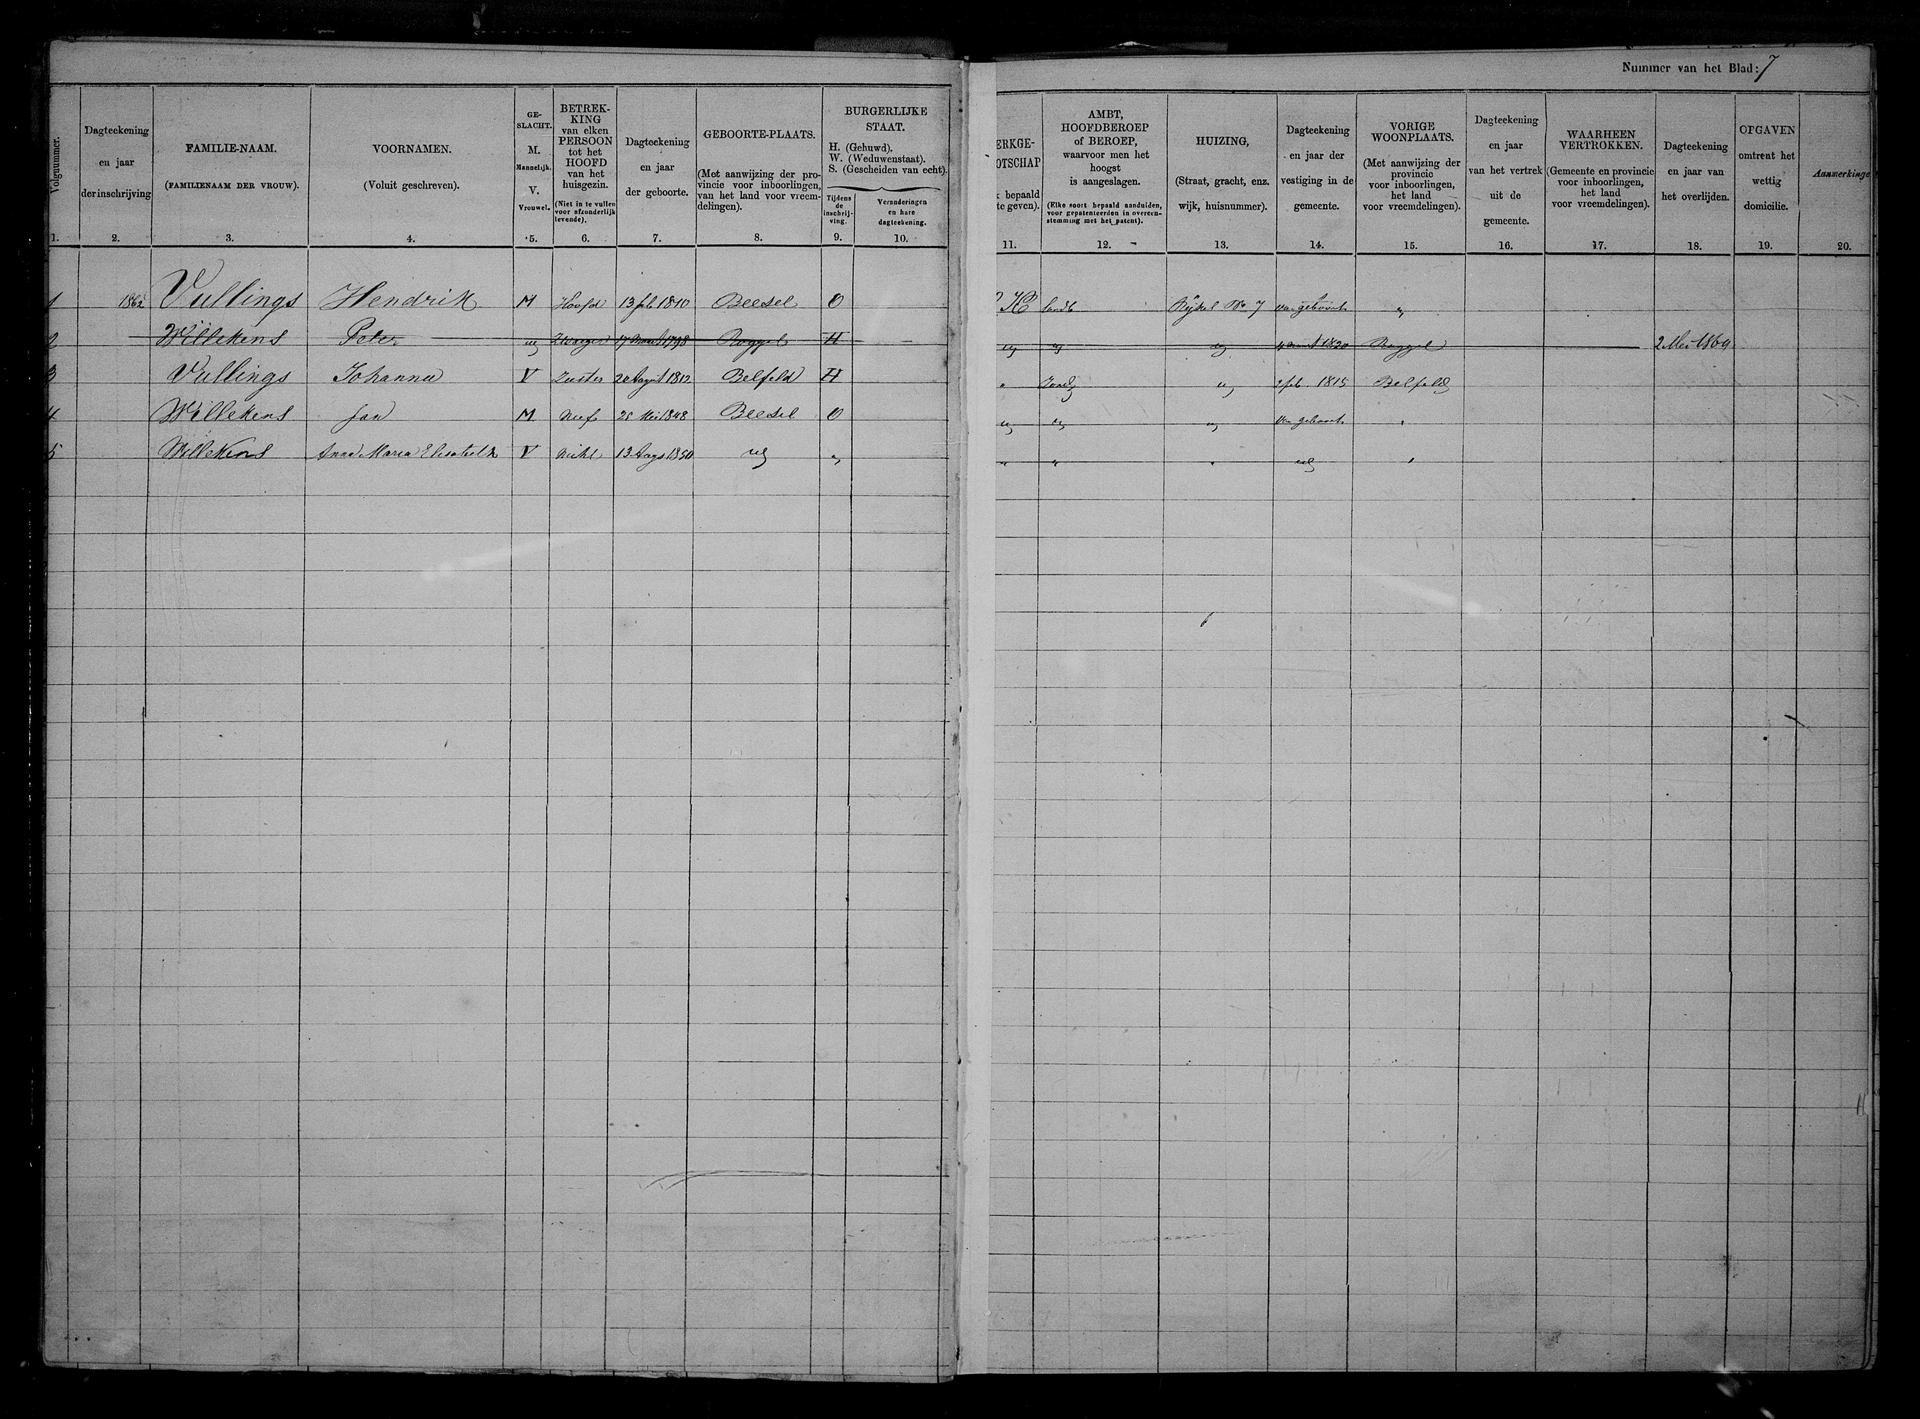 Nummer van het Blad: 7
Volgnummer.
Dagteekening
en jaar
der inschrijving
FAMILIE-NAAM.
(FAMILIENAAM DER VROUW).
VOORNAMEN.
(Voluit geschreven).
GE-
SLACHT.
M.
Mannelijk.
V.
Vrouwel.
BETREK-
KING
van elken
PERSOON
tot het
HOOFD
van het
huisgezin.
(Niet in te vullen
voor afzonderlijk
levende).
Dagteekening
en jaar
der geboorte.
GEBOORTE-PLAATS.
(Met aanwijzing der pro-
vincie voor inboorlingen,
van het land voor vreem-
delingen).
BURGERLIJKE
STAAT.
H. (Gehuwd).
W. (Weduwenstaat).
S. (Gescheiden van echt).
Tijdens
de
inschrij-
ving.
Veranderingen
en hare
dagteekening.
ERKGE-
OTSCHAP
k bepaald
te geven).
AMBT,
HOOFDBEROEP
of BEROEP,
waarvoor men het
hoogst
is aangeslagen.
(Elke soort bepaald aanduiden,
voor gepatenteerden in overeen-
stemming met het patent).
HUIZING,
(Straat, gracht, enz.
wijk, huisnummer).
Dagteekening
en jaar der
vestiging in de
gemeente.
VORIGE
WOONPLAATS.
(Met aanwijzing der
provincie
voor inboorlingen,
het land
voor vreemdelingen).
Dagteekening
en jaar
van het vertrek
uit de
gemeente.
WAARHEEN
VERTROKKEN.
(Gemeente en provincie
voor inboorlingen,
het land
voor vreemdelingen).
Dagteekening
en jaar van
het overlijden.
OPGAVEN
omtrent het
wettig
domicilie.
Aanmerkinge
1. 2. 3. 4. 5. 6. 7. 8. 9. 10. 11. 12. 13. 14. 15. 16. 17. 18. 19. 20.
1 1862 Vullings Hendrik M Hoofd 13 feb 1810 Beesel O K landb Rijkel No 7 van geboort "
2 Willekens Peter Zwager 1798 Roggel H 1820 Roggel 2 Mei 1869
3 Vullings Johanna V Zuster 1812 Belfeld H " feb. 1815 Belfeld
4 Willekens Jan M Neef 25 Mei 1848 Beesel O van geboort "
5 Willekens Anna Maria Elisabeth V Nicht 13 Augs 1850 " " " " "